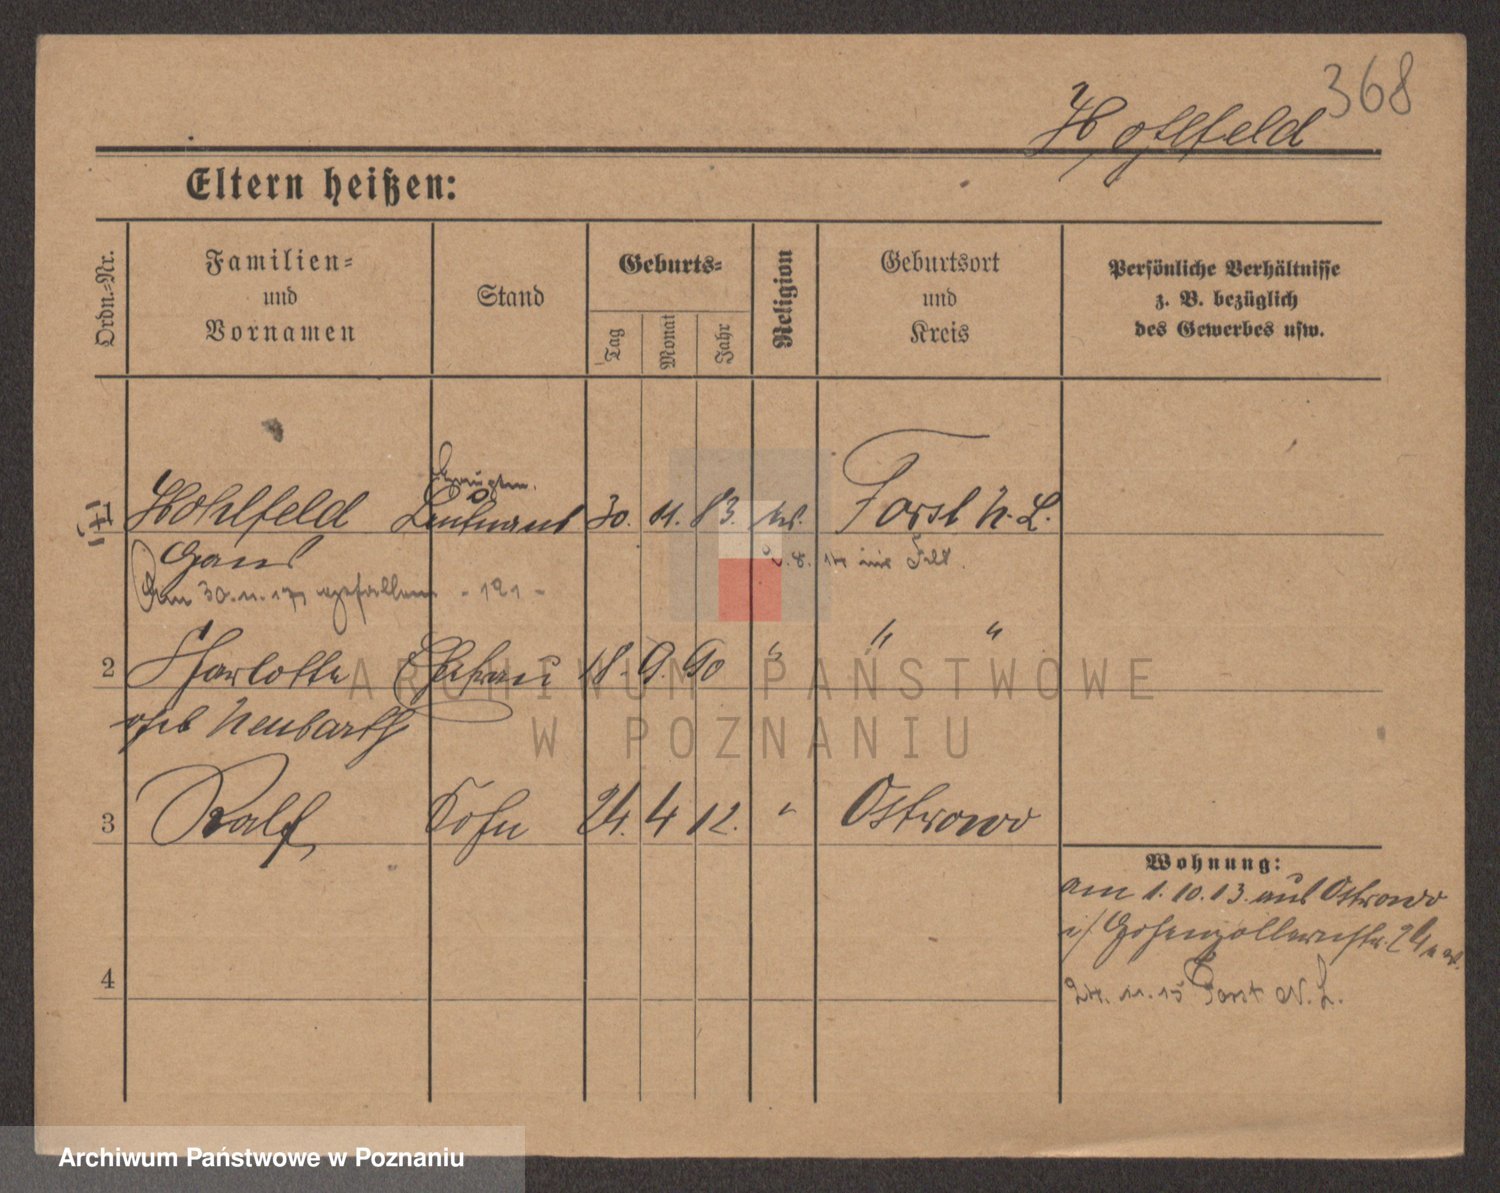 368
Hohlfeld
Eltern heißen:
Ordn.=Nr.
Familien=
und
Vornamen
Stand
Geburts=
Tag
Monat
Jahr
Religion
Geburtsort
und
Kreis
Persönliche Verhältnisse
z. B. bezüglich
des Gewerbes usw.
Hauptm.
Hohlfeld Leutnant 30. 11. 83. ev. Forst N. L.
Hans
2. 8. 14 ins Feld.
Am 30. 11. 17 gefallen - 121 -
2 Charlotte Ehefrau 18. 9. 90 " " "
geb Neubarth
3 Ralf Sohn 24. 4 12. " Ostrowo
Wohnung:
am 1. 10. 13. aus Ostrowo
i/ Hohenzollernstr. 24
4
24. 11. 15 Forst N. L.
ARCHIWUM PAŃSTWOWE
W POZNANIU
Archiwum Państwowe w Poznaniu